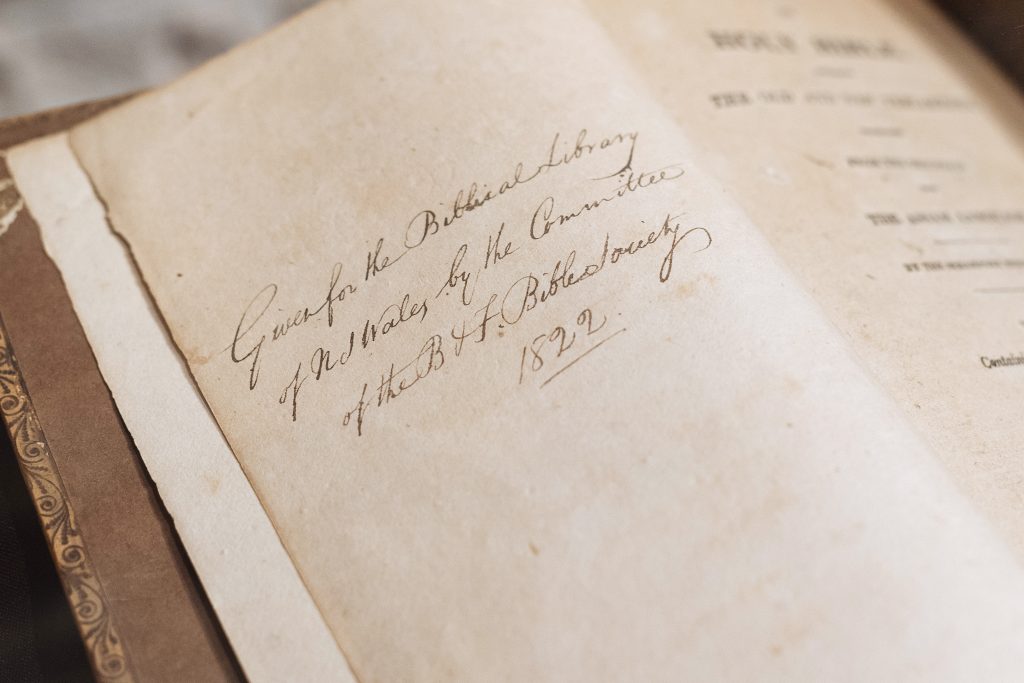 Given for the Biblical Library
of N S Wales by the Committee
of the B & F. Bible Society
1822.
HOLY BIBLE,
THE OLD AND NEW TESTAMENTS
BY THE
Containin